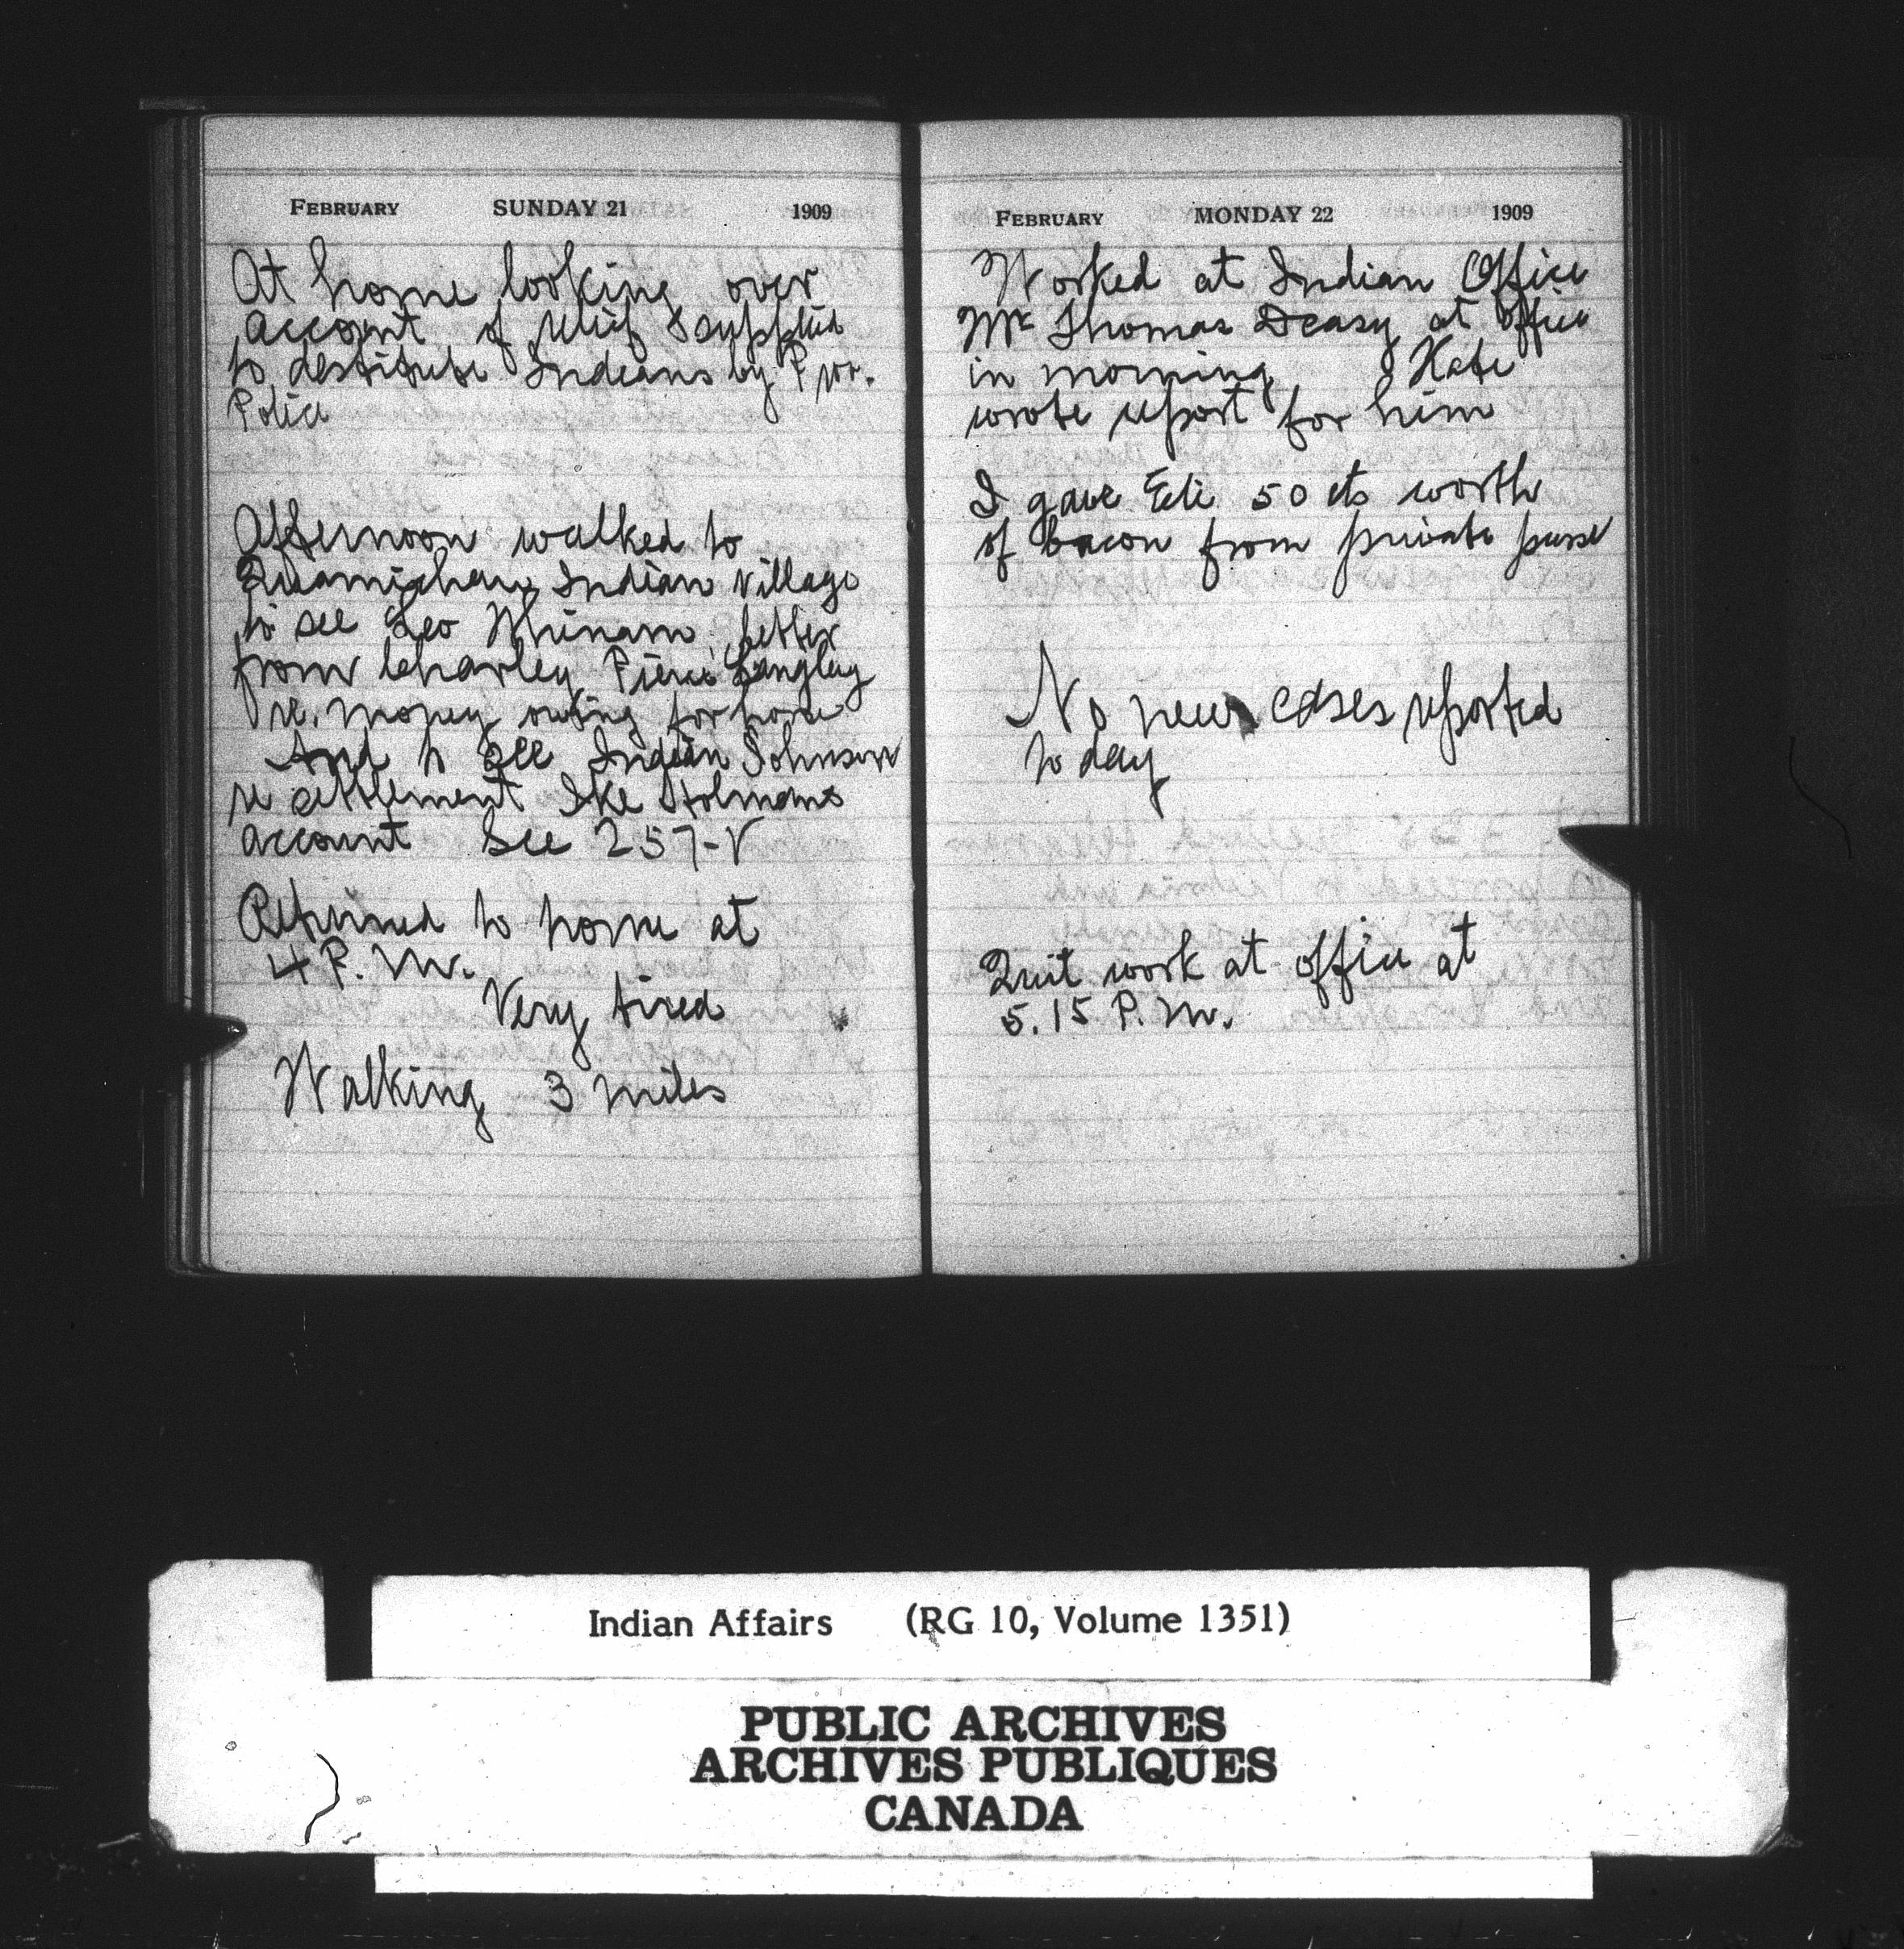 FEBRUARY SUNDAY 21 1909
At home looking over
account of relief & supplied
to destitute Indians by Prov.
Police
Afternoon walked to
Quamichan Indian Village
to see Geo letter
from Charley Pierre Langley
re. money owing for horse
And to see Indian Johnson
re settlement Ike Holmans
account See 257-V
Returned to home at
4 P.M.
Very tired
Walking 3 miles
FEBRUARY MONDAY 22 1909
Worked at Indian Office
Mr Thomas Deasy at office
in morning Kate
wrote report for him
I gave 50 cts worth
of bacon from private purse
No new cases reported
to day
Quit work at office at
5.15 P.M.
Indian Affairs (RG 10, Volume 1351)
PUBLIC ARCHIVES
ARCHIVES PUBLIQUES
CANADA